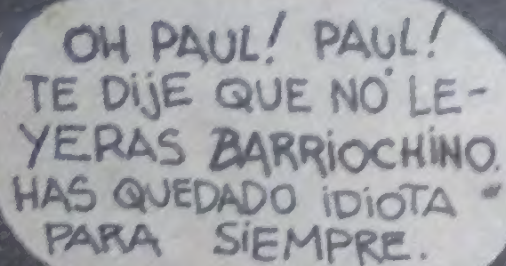 OH PAUL! PAUL!
TE DiJE QUE NO LE-
YERAS BARRiOCHiNO.
HAS QUEDADO iDiOTA
PARA SiEMPRE.